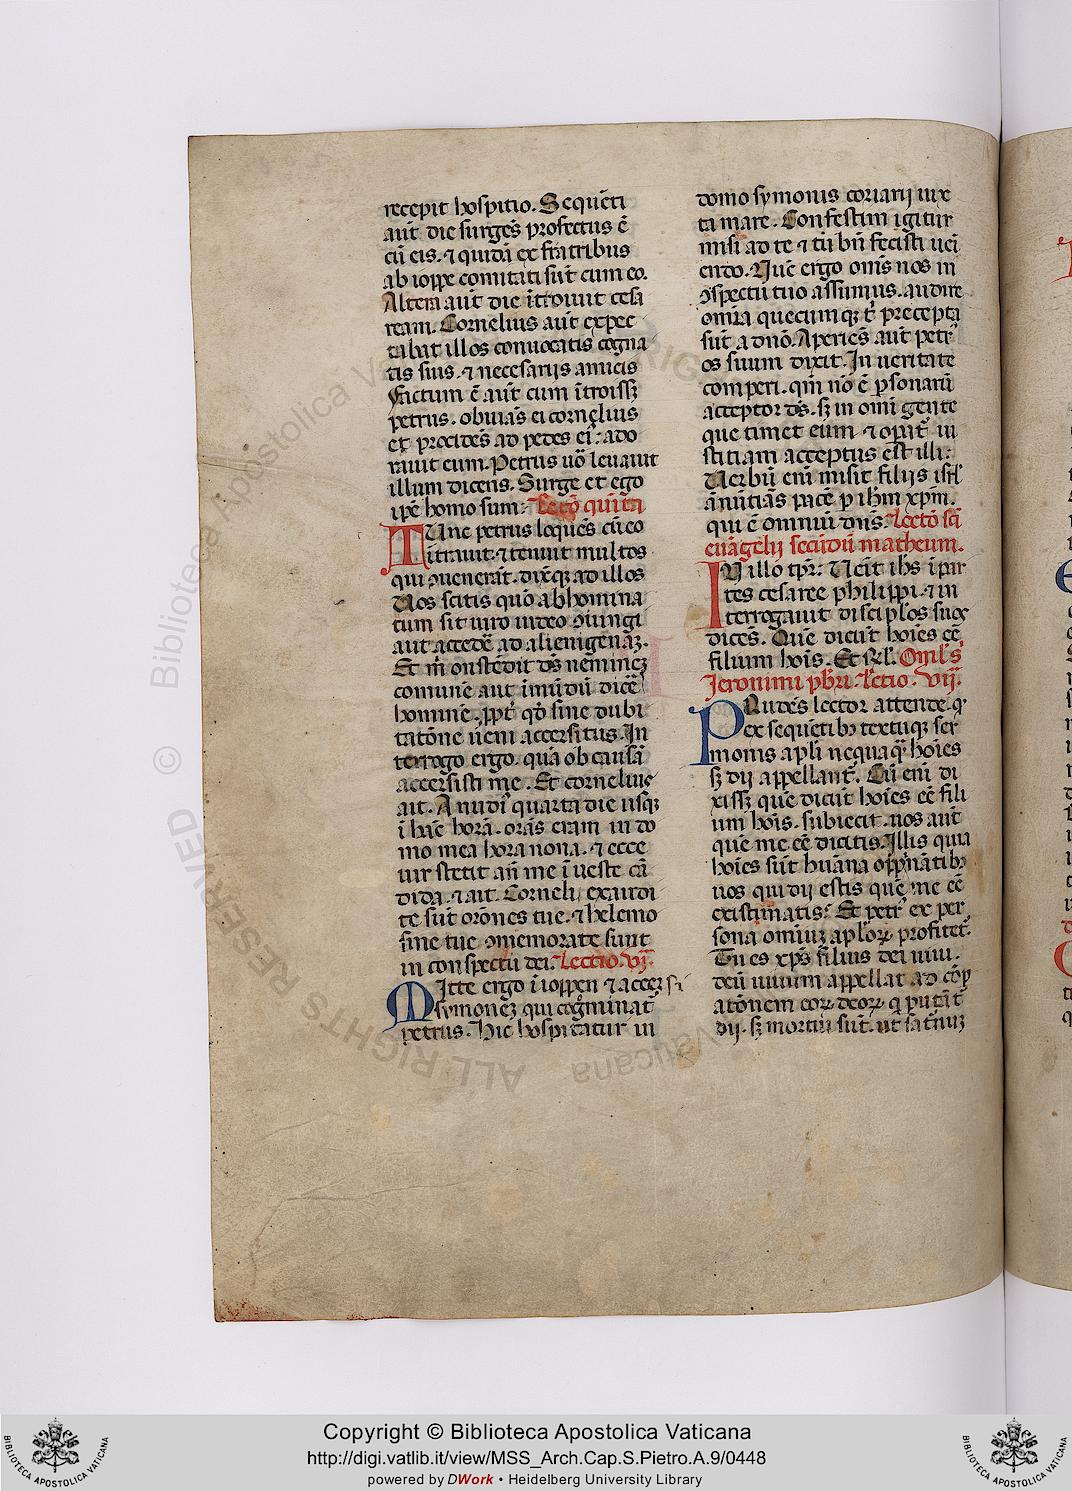 recepit hospitio. Sequēti
aūt die surgēs profectus ē
cū eis. ⁊ quidā ex fratribus
ab ioppe comitati sūt cum eo.
Altera aūt die ītroiuit cesa
ream. Cornelius aūt expec
tabat illos conuocatis cogna
tis suis. ⁊ necesarijs amicis
Factum ē aūt cum ītroissꝫ
petrus. obuiās ei cornelius
et procidēs ad pedes eiꝰ: ado
rauit eum. Petrus uō leuauit
illum dicens. Surge et ego
ipē homo sum: Lectō quīta
TUnc petrus loquēs cū eo
ītrauit. ⁊ īuenit multos
qui ꝯuenerāt. dixꝗꝫ ad illos
Uos scitis quō abhomina
tum sit uiro iudeo ꝯiungi
aut accedē ad alienigenaꝫ.
Et m̄ ostēdit dꝰs neminēꝫ
comunē aut īmūdū dicē
hominē. ꝓpt̄ qđ sine dubi
tatōne ueni accersitus. In
terrogo ergo. quā ob causā
accersisti me. Et cornelius
ait. A nudiꝰ quarta die usqꝫ
ī hāc horā. orās eram in do
mo mea hora nona. ⁊ ecce
uir stetit añ me ī ueste cā
dida. ⁊ ait. Corneli exaudi
te sūt orōnes tue. ⁊ helemo
sine tue ꝯmemorate sunt
in conspectu dei. Lectio. vj.
MItte ergo ī ioppen ⁊ accersi
symoneꝫ qui cogminat̄
petrus. Hic hospitatur in
domo symonis coriarij iux
ta mare. Confestim igitur
misi ad te ⁊ tu bn̄ fecisti ueī
endo. Nūc ergo om̄s nos in
ꝯspectu tuo assumus. audire
omīa quecumqꝫ t̄ precepta
sūt a dn̄o. Aperiēs aūt petrꝰ
os suum dixit. In ueritate
comperi. qm̄ nō ē ꝑsonarū
acceptor dꝰs. sꝫ in omī gente
que timet eum ⁊ opat̄ iu
stitiam acceptus est illi.
Uerbū enī misit filijs isrl̄
ānūtiās pacē ꝑ ihm̄ xpm̄.
qui ē omniū dn̄s. Lectō scī
euāgelij secūdū matheum.
IN illo tpr̄: Ueīt ihs̄ ī par
tes cesaree philippi. ⁊ in
terrogauit discipl̄os suoꝝ
dicēs. Quē dicūt hoīes eē
filium hoīs. Et rel̄. Oml̄s
Jeronimi pb̄ri Lectio. vij.
PRudēs lector attende. qꝰ
ex sequētibꝰ textuqꝫ ser
monis apl̄i nequaqꝰ hoīes
sꝫ dij appellant̄. Cū enī di
xissꝫ quē dicūt hoīes eē fili
um hoīs. subiecit. uos aūt
quē me eē dicitis. Illis quia
hoīes sūt hūana opīnātibꝰ
uos qui dij estis quē me eē
existimatis: Et petrꝰ ex per
sona omiuꝫ apl̄oꝝ profitet̄.
Tu es xp̄s filius dei uiui.
deū uiuum appellat ad cōp
atōnem eoꝝ deoꝝ q putāt̄
dij. sꝫ mortui sūt. ut sat̄nuꝫ
Copyright © Biblioteca Apostolica Vaticana
http://digi.vatlib.it/view/MSS_Arch.Cap.S.Pietro.A.9/0448
powered by DWork • Heidelberg University Library